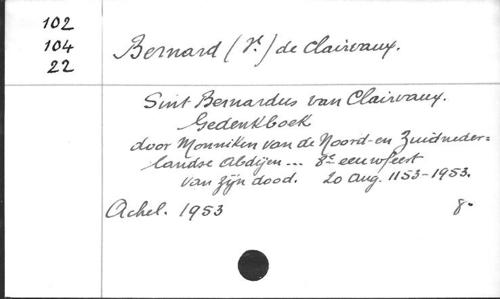 102
104
22
Bernard (St.) de Clairvaux.
Sint Bernardus van Clairvaux.
Gedenkboek
door Monniken van de Noord-en Zuidneder=
landse Abdijen... 8e eeuwfeest
van zijn dood. 20 aug. 1153-1953.
Achel. 1953
8°